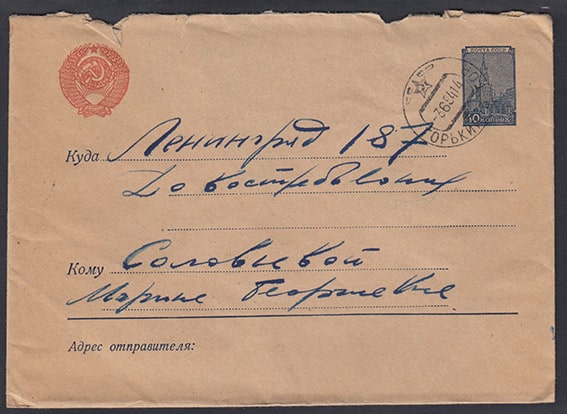 ПОЧТА СССР
40 КОПЕЕК
ГОРЬКИЙ
Куда Ленинград 187
До востребования
Кому Соловьевой
Марине Георгиевне
Адрес отправителя: